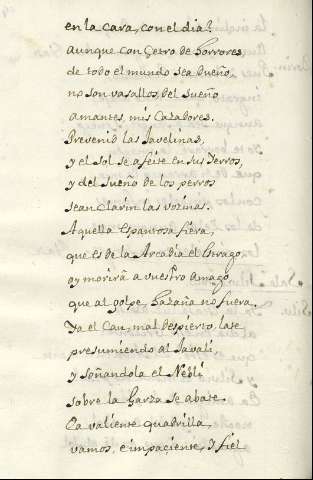 en la cara, con el dia?
aunque con Çetro de horrores
de todo el mundo sea Dueño,
no son vasallos del sueño
amantes, mis Cazadores.
Prevenid las Iavelinas,
y el Sol se afeite en sus Ierros,
y del sueño de los perros
sean Clarin las vozinas.
Aquella espantosa fiera,
que es de la Arcadia el estrago
oy morirà a vuestro amago
que al golpe, hazaña no fuera.
Ya el Can, mal despierto, late
presumiendo al Iavali
y soñandola el Nebli
sobre la Garza se abate.
Ea valiente quadrilla,
vamos, e impaciente, y fiel